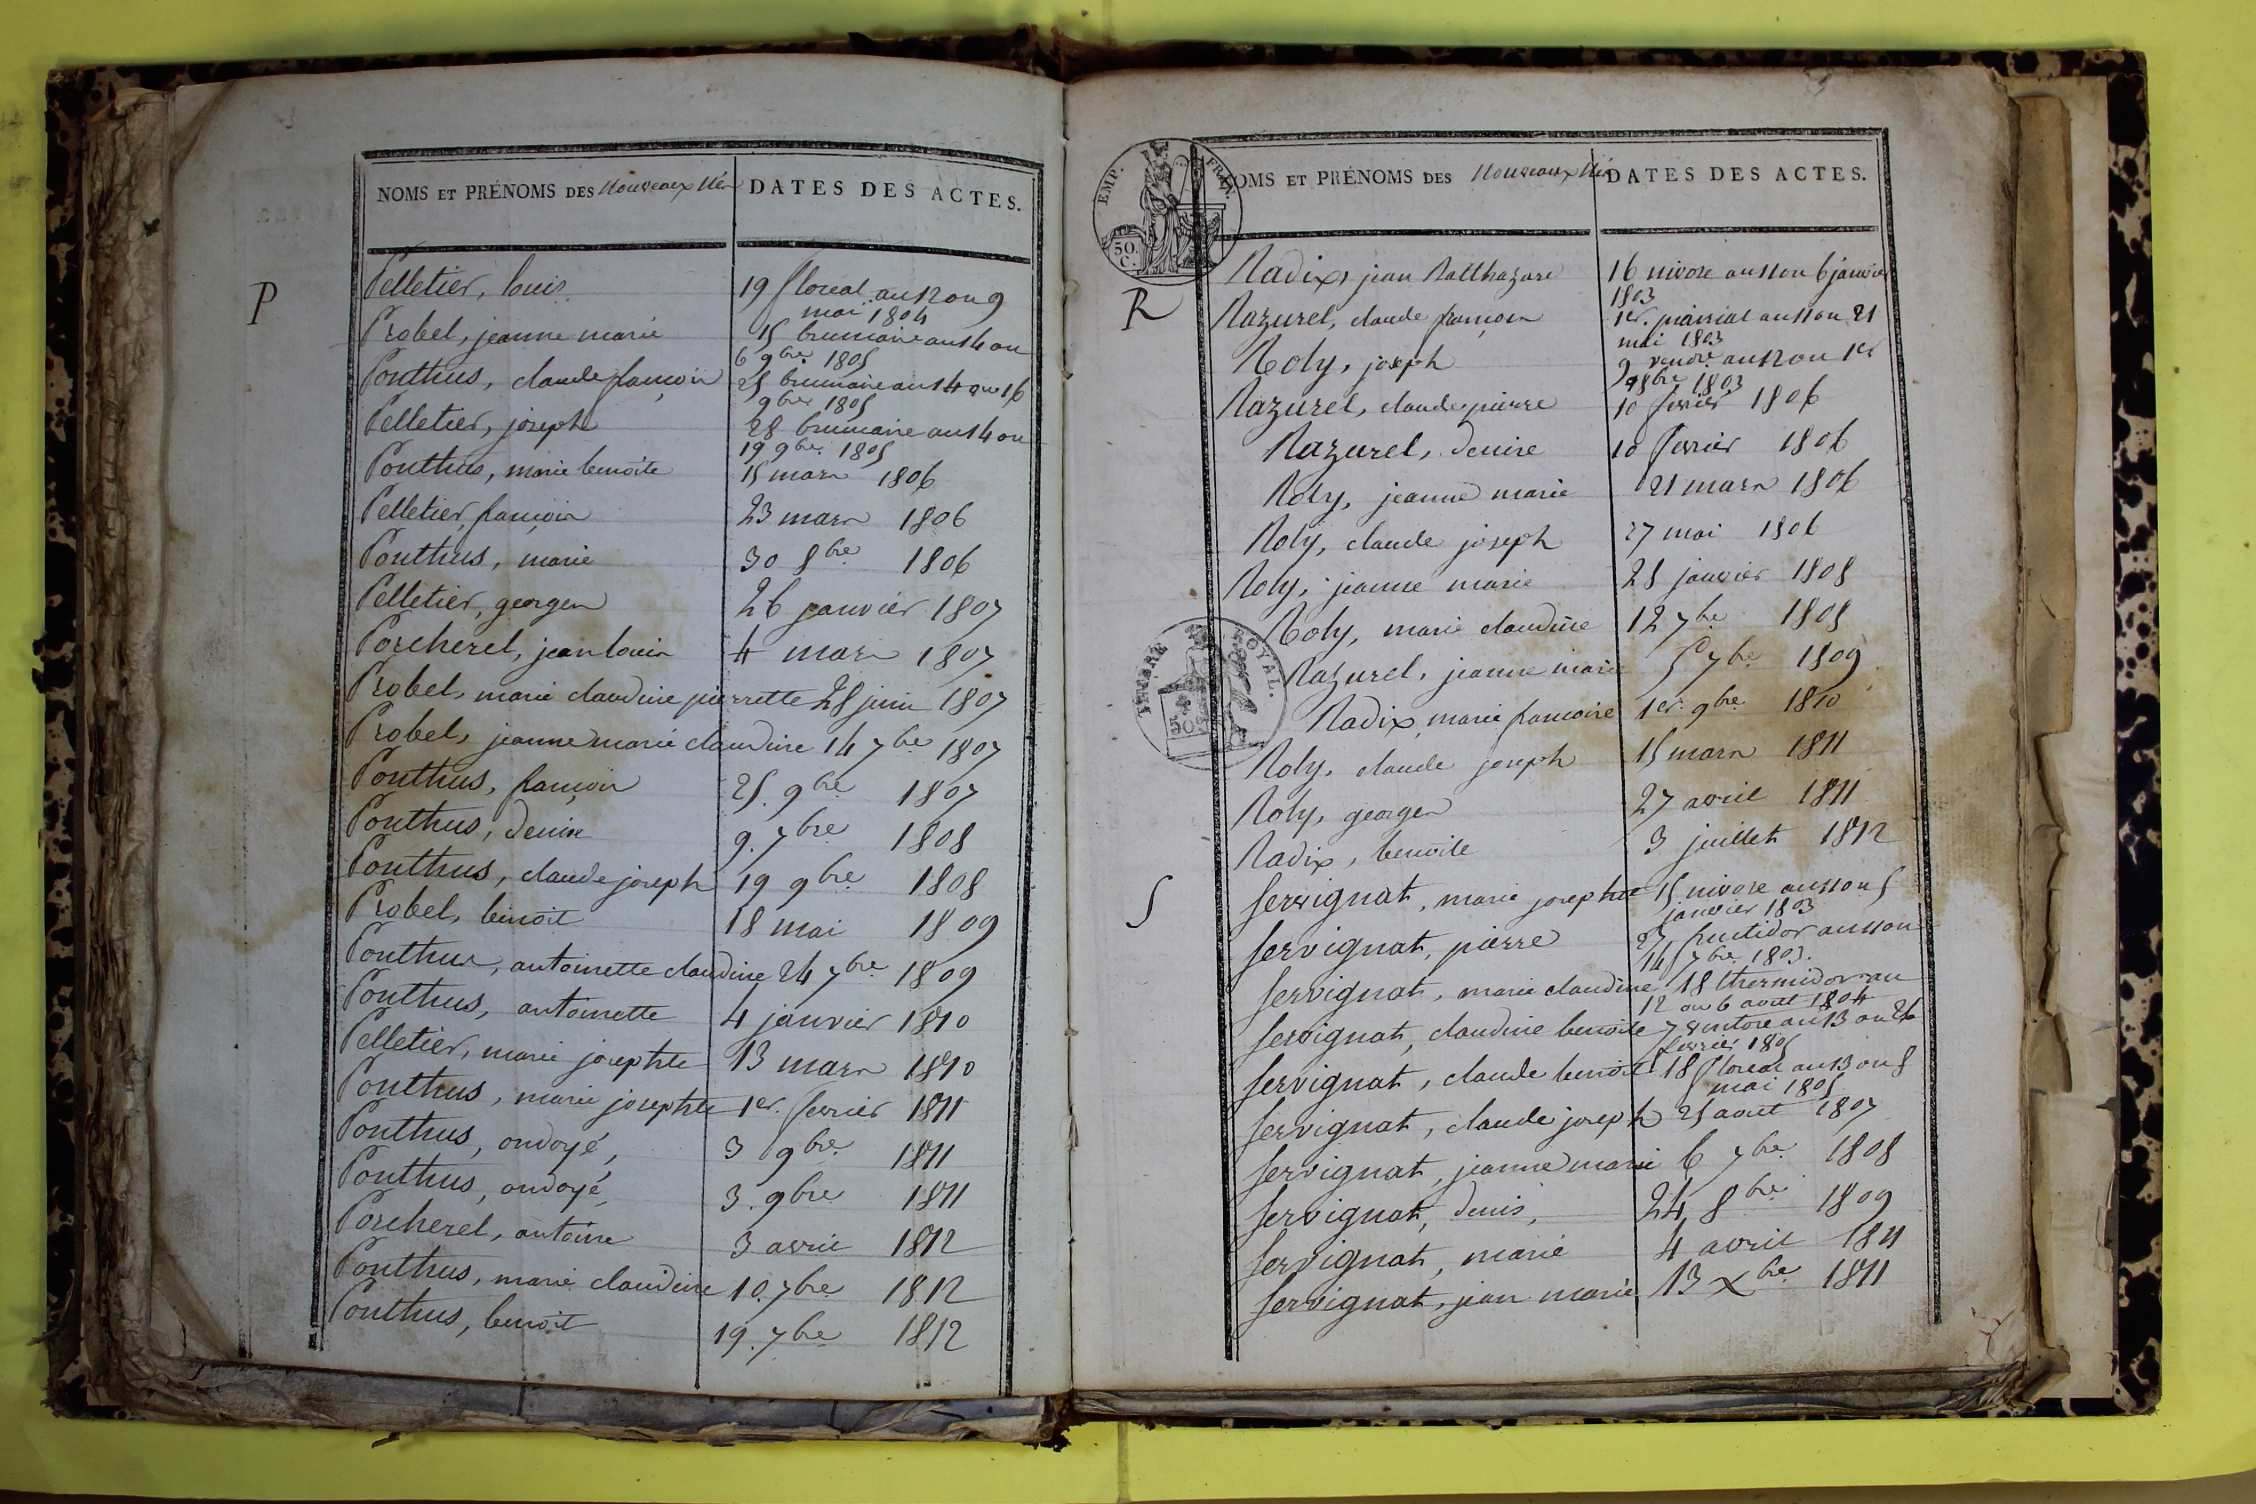 NOMS ET PRÉNOMS DES Nouveaux Nés DATES DES ACTES.
P
Pelletier, louis 19 floreal an 12 ou 9
mai 1804
Probel, jeanne marie 15 brumaire an 14 ou
6 9bre 1805
Ponthus, claude françois 25 brumaire an 14 ou 16
9bre 1805
Pelletier, joseph 28 brumaire an 14 ou
19 9bre 1805
Ponthus, marie benoite 15 mars 1806
Pelletier, françois 23 mars 1806
Ponthus, marie 30 8bre 1806
Pelletier, georges 26 janvier 1807
Porcherel, jean louis 4 mars 1807
Probel, marie claudine pierrette 28 juin 1807
Probel, jeanne marie claudine 14 7bre 1807
Ponthus, françois 25. 9bre 1807
Ponthus, denise 9. 7bre 1808
Ponthus, claude joseph 19 9bre 1808
Probel, benoit 18 mai 1809
Ponthus, antoinette claudine 24 7bre 1809
Ponthus, antoinette 4 janvier 1810
Pelletier, marie josephte 13 mars 1810
Ponthus, marie josephte 1er. fevrier 1811
Ponthus, ondoyé, 3 9bre 1811
Ponthus, ondoyé, 3. 9bre 1811
Porcherel, antoine 3 avril 1812
Ponthus, marie claudine 10. 7bre 1812
Ponthus, benoit 19. 7bre 1812
EMP. FRAN.
50.
C.
NOMS ET PRÉNOMS DES Nouveaux Nés DATES DES ACTES.
R
Radix, jean Balthazare 16 nivose an 11 ou 6 janvier
1803
Razurel, claude françois 1er. prairial an 11 ou 21
mai 1803
Roly, joseph 9 vendre an 12 ou 1er
8bre 1803
Razurel, claude pierre 10 fevrier 1806
Razurel, denise 10 fevrier 1806
Roly, jeanne marie 21 mars 1806
Roly, claude joseph 27 mai 1806
Roly, jeanne marie 25 janvier 1808
Roly, marie claudine 12 7bre 1808
TIMBRE ROYAL.
50
Razurel, jeanne marie 5 7bre 1809
Radix, marie françoise 1er. 9bre 1810
Roly, claude joseph 15 mars 1811
Roly, georges 27 avril 1811
Radix, benoite 3 juillet 1812
S
Servignat, marie josephte 15 nivose an 11 ou 5
janvier 1803
Servignat, pierre 27 fructidor an 11 ou
14 7bre 1803.
Servignat, marie claudine 18 thermidor an
12 ou 6 aout 1804
Servignat, claudine benoite 7 ventose an 13 ou 26
fevrier 1805
Servignat, claude benoit 18 floreal an 13 ou 8
mai 1805
Servignat, claude joseph 25 aout 1807
Servignat, jeanne marie 6 7bre 1808
Servignat, denis, 24 8bre 1809
Servignat, marie 4 avril 1811
Servignat, jean marie 13 Xbre 1811